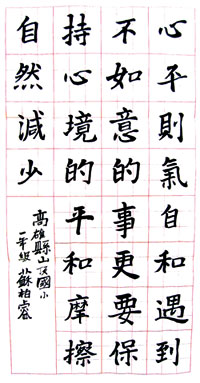 心平則氣自和遇到
不如意的事更要保
持心境的平和摩擦
自然減少
高雄縣山頂國小
一年組 蘇柏睿